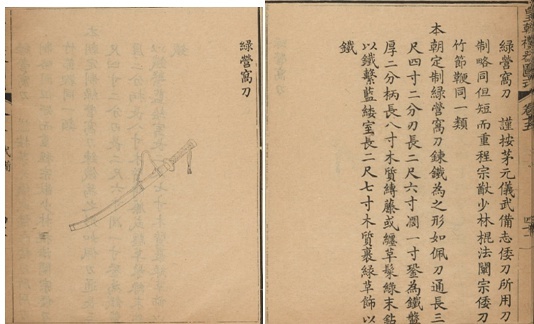 皇朝禮器圖式 卷十五
綠營窩刀 謹按茅元儀武備志倭刀所用刀
制略同但短而重程宗猷少林棍法闡宗倭刀
竹節鞭同一類
本朝定制綠營窩刀鍊鐵為之形如佩刀通長三
尺四寸二分刃長二尺六寸濶一寸銎為鐵盤
厚二分柄長八寸木質縛藤或纏草髹綠末鈷
以鐵繫藍緌室長二尺七寸木質裹綠草飾以
鐵
綠營窩刀